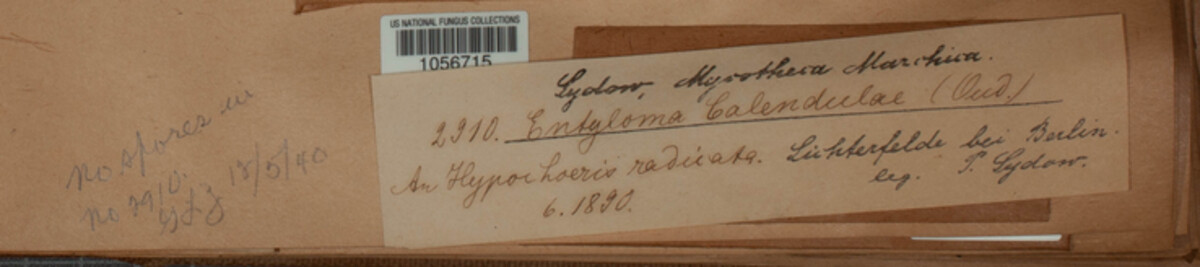 US NATIONAL FUNGUS COLLECTIONS
1056715
Sydow, Mycotheca Marchica.
2910. Entyloma Calendulae (Oud.)
An Hypochoeris radicata. Lichterfelde bei Berlin.
6.1890. leg. P. Sydow.
No spores in
No 2910.
12/5/40